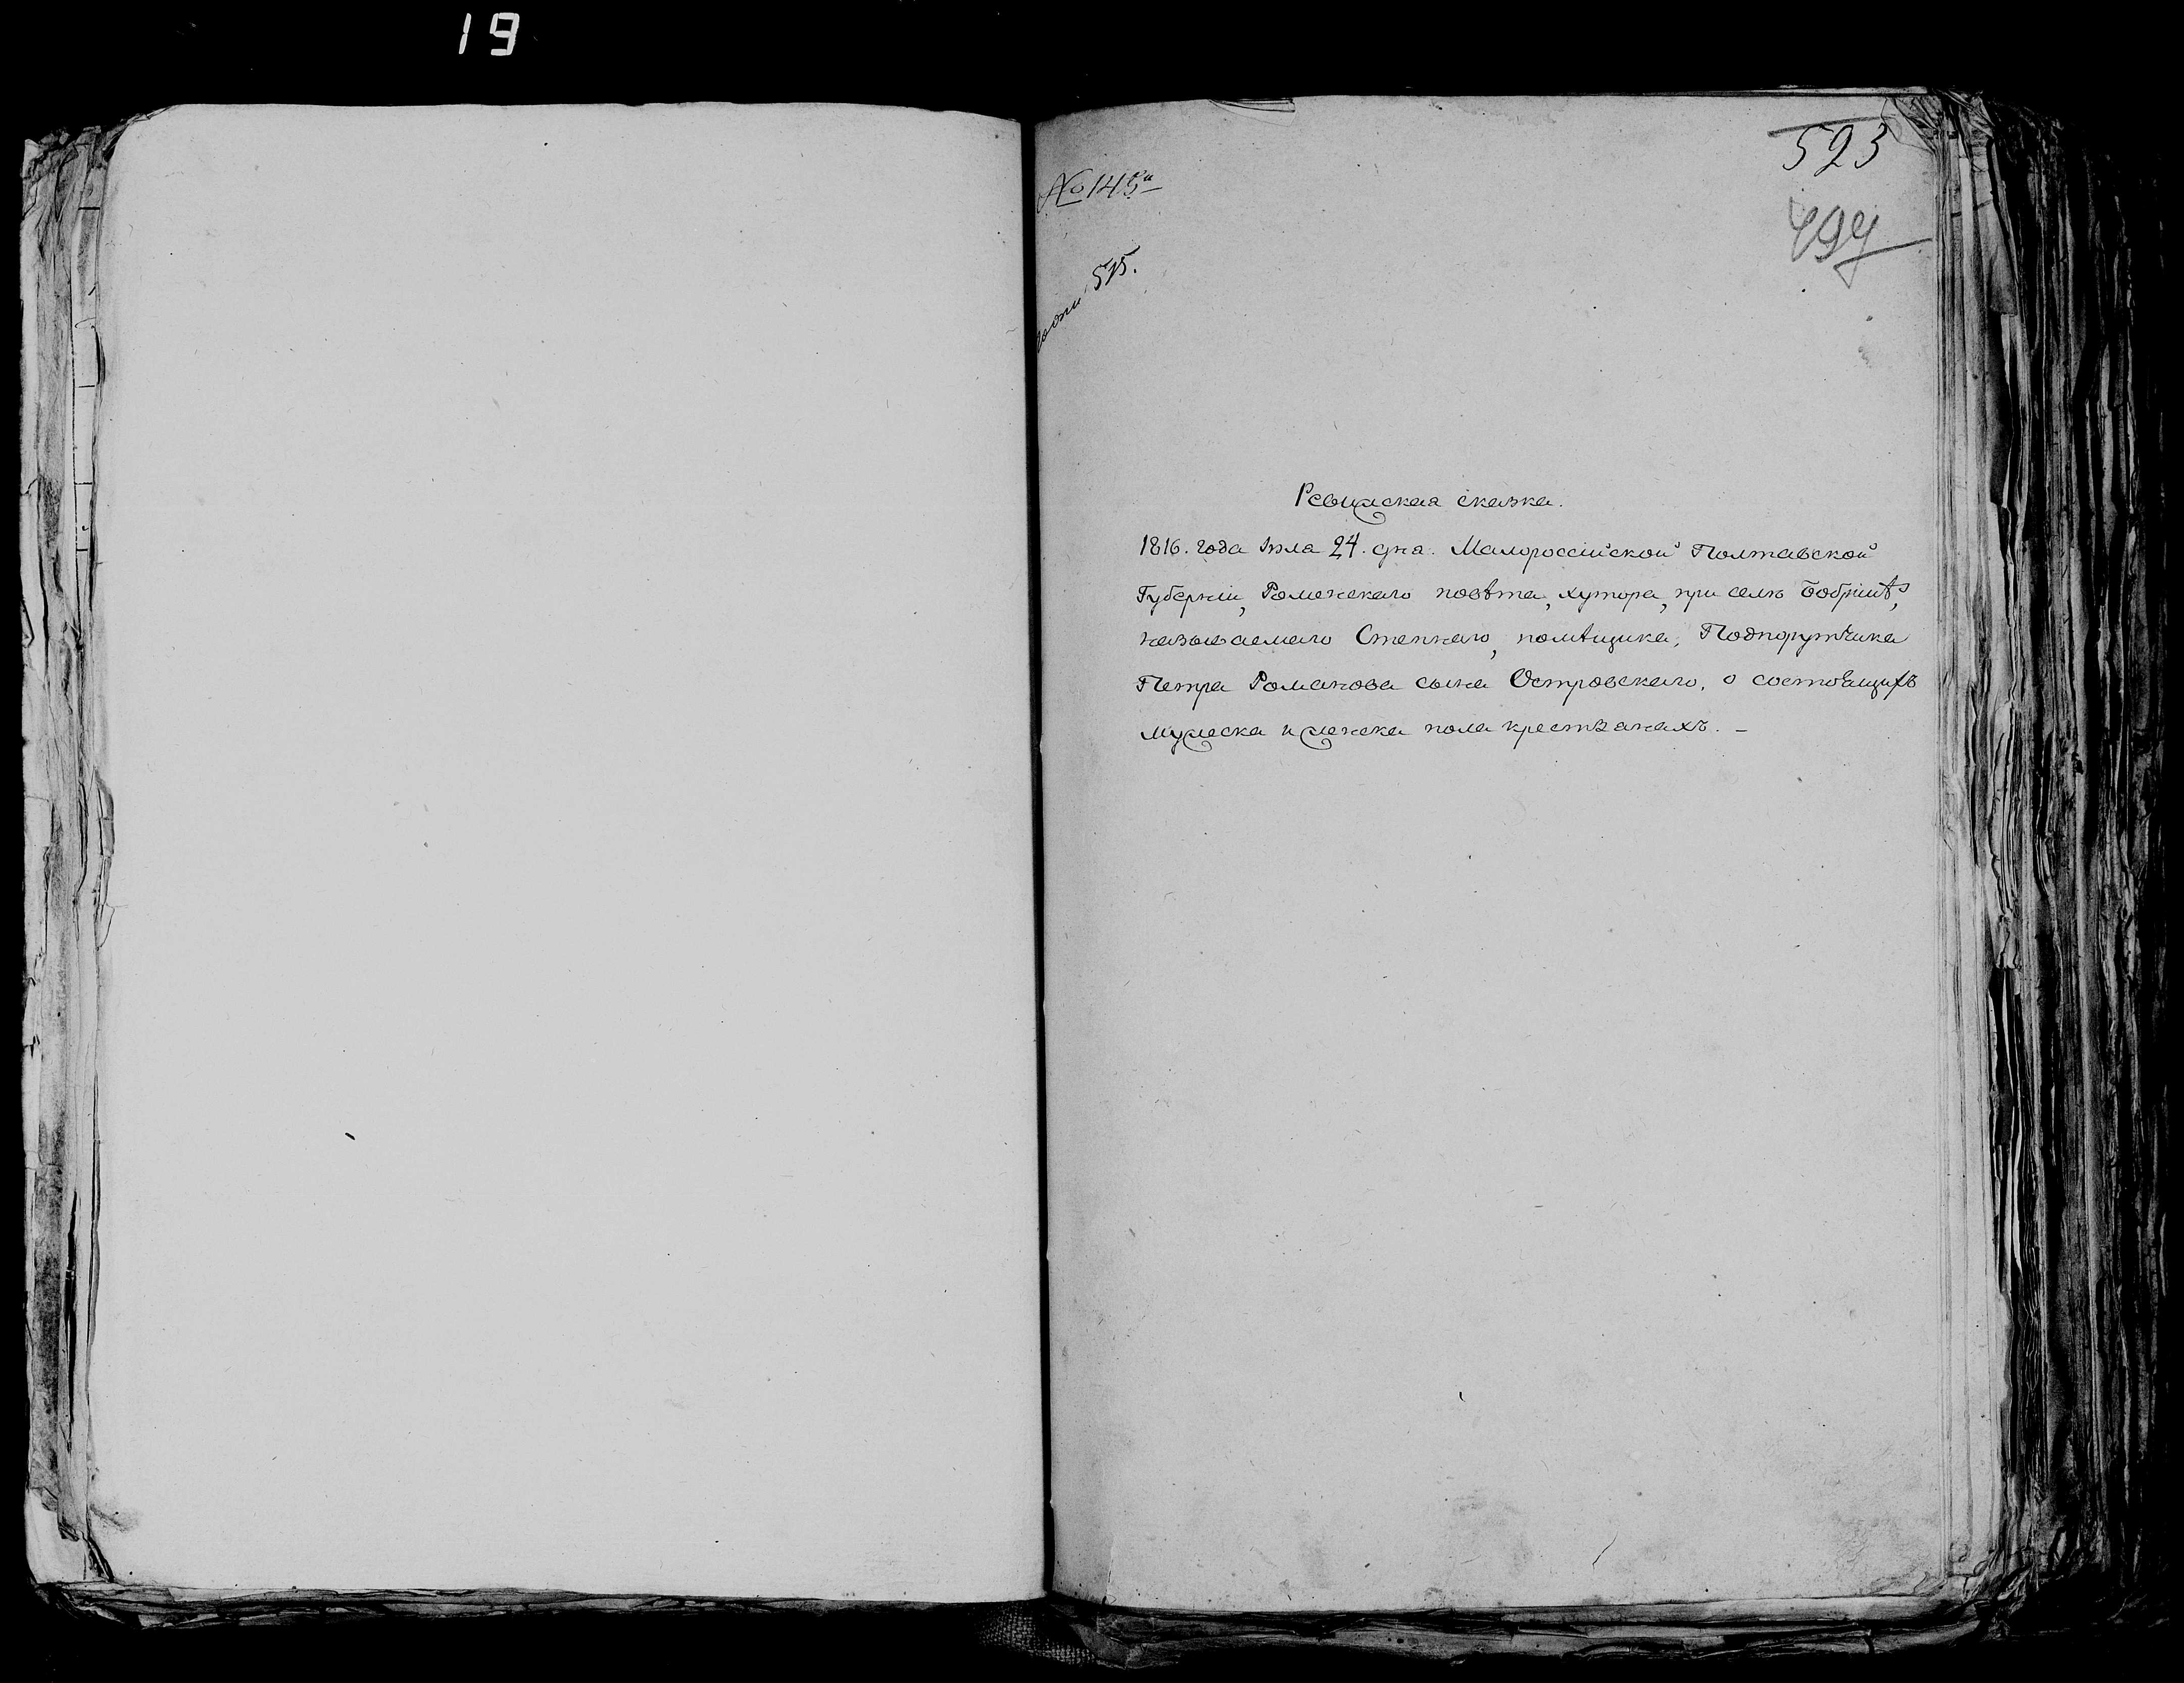 19
523
№ 145й
494
515.
Ревижская сказка.
1816. года Июла 24. дня. Малороссійской Полтавской
Губерніи, Роменскаго повѣта, хутора, при селѣ Бобрикѣ,
называемаго Степнаго, помѣщика, Подпорутчика
Петра Романова сына Островскаго, о состоящихъ
мужеска и женска пола крестьянахъ. –